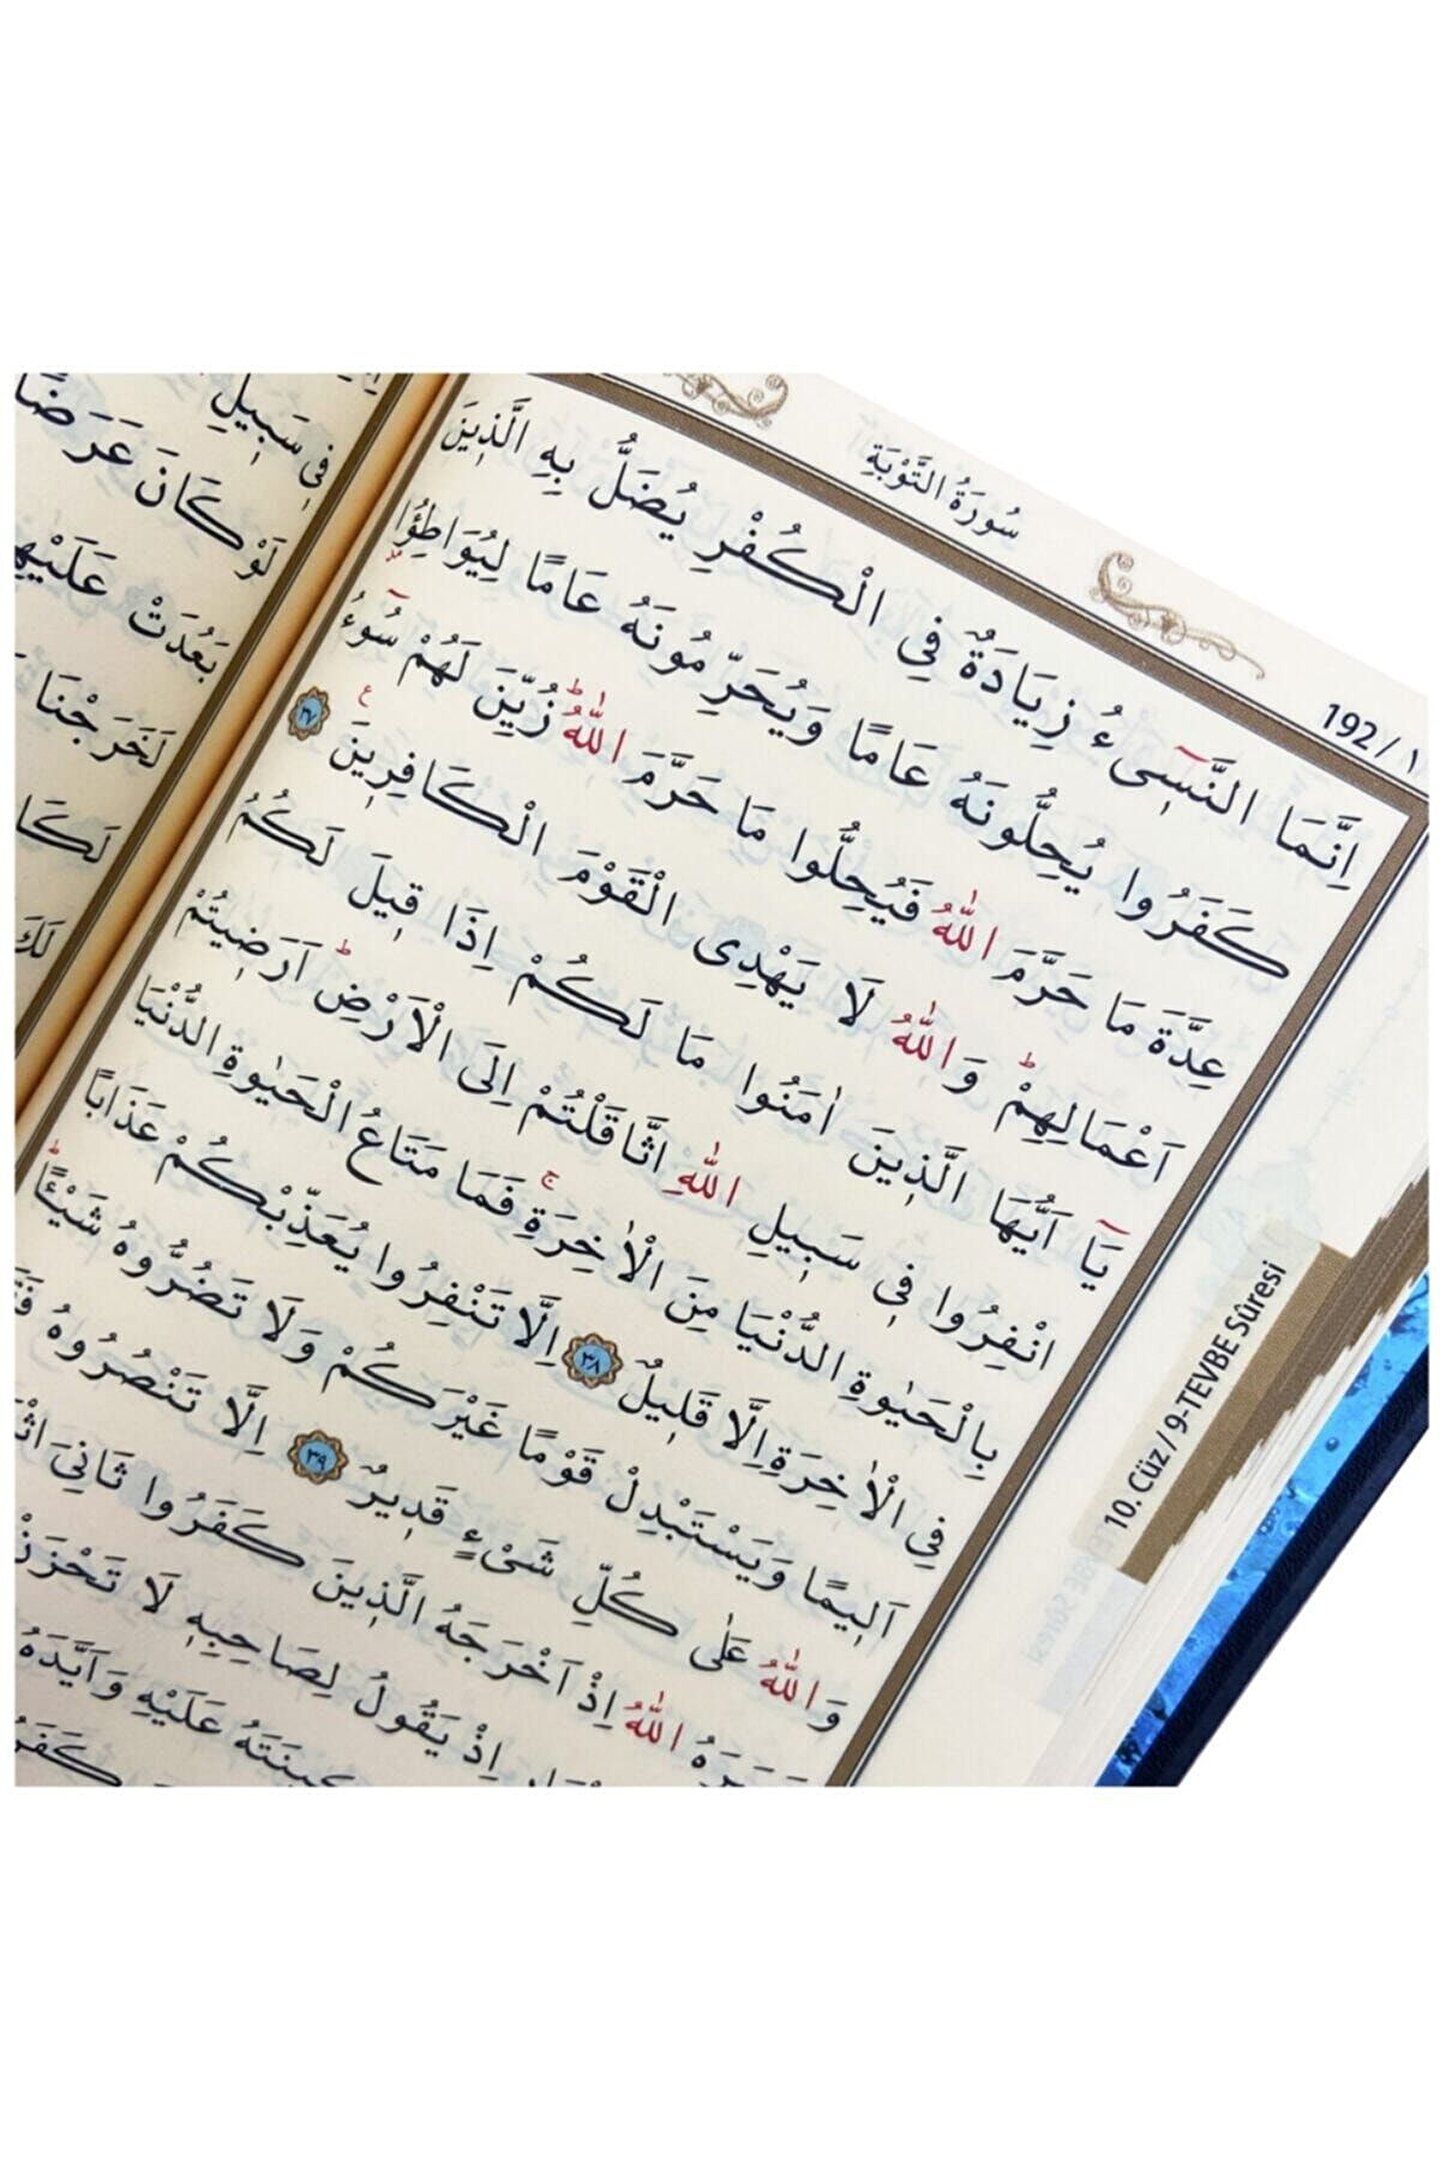 سُورَةُ التَّوْبَةِ
192 / ١
اِنَّمَا النَّسٖٓىءُ زِيَادَةٌ فِي الْكُفْرِ يُضَلُّ بِهِ الَّذٖينَ
كَفَرُوا يُحِلُّونَهُ عَامًا وَيُحَرِّمُونَهُ عَامًا لِيُوَاطِؤُ۫ا
عِدَّةَ مَا حَرَّمَ اللّٰهُ فَيُحِلُّوا مَا حَرَّمَ اللّٰهُؕ زُيِّنَ لَهُمْ سُٓوءُ
اَعْمَالِهِمْؕ وَاللّٰهُ لَا يَهْدِى الْقَوْمَ الْكَافِرٖينَࣖ ﴿٣٧﴾
يَٓا اَيُّهَا الَّذٖينَ اٰمَنُوا مَا لَكُمْ اِذَا قٖيلَ لَكُمُ
انْفِرُوا فٖى سَبٖيلِ اللّٰهِ اثَّاقَلْتُمْ اِلَى الْاَرْضِؕ اَرَضٖيتُمْ
بِالْحَيٰوةِ الدُّنْيَا مِنَ الْاٰخِرَةِۚ فَمَا مَتَاعُ الْحَيٰوةِ الدُّنْيَا
فِي الْاٰخِرَةِ اِلَّا قَلٖيلٌ ﴿٣٨﴾ اِلَّا تَنْفِرُوا يُعَذِّبْكُمْ عَذَابًا
اَلٖيمًا وَيَسْتَبْدِلْ قَوْمًا غَيْرَكُمْ وَلَا تَضُرُّوهُ شَيْئًاؕ
وَاللّٰهُ عَلٰى كُلِّ شَىْءٍ قَدٖيرٌ ﴿٣٩﴾ اِلَّا تَنْصُرُوهُ
اللّٰهُ اِذْ اَخْرَجَهُ الَّذٖينَ كَفَرُوا ثَانِىَ
اِذْ يَقُولُ لِصَاحِبِهٖ لَا تَحْزَنْ
عَلَيْهِ وَاَيَّدَهُ
فٖى سَبٖيلِ
لَوْ كَانَ عَرَضًا
بَعُدَتْ
لَخَرَجْنَا
10. Cüz / 9-TEVBE Sûresi